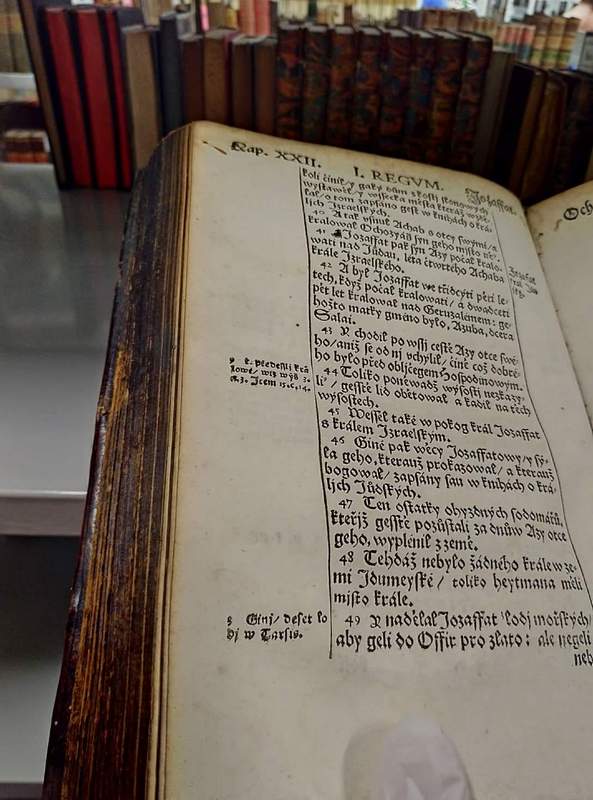 Kap. XXII. I. REGVM. Jozaffat.
koli činil / y gaký dům z kostj slonowých
wystawěl / y wssecka města kteráž wzdě-
lal / o tom zapsáno gest w knihách o krá-
ljch Izraelských.
40 A tak usnul Achab s otcy swými / a
kralowal Ochozyáš syn geho mjsto něho.
41 Jozaffat pak syn Azy počal kralo-
wati nad Júdau, léta čtwrtého Achaba
krále Izraelského.
42 A byl Jozaffat we třidcýti pěti le-
tech, když počal kralowati / a dwadceti
pět let kralowal nad Geruzalémem: ge-
hožto matky gméno bylo, Azuba, dcera
Salai.
43 Y chodil po wssj cestě Azy otce swé-
ho / aniž se od nj uchýlil / čině což dobré-
ho bylo před obljčegem Hospodinowým.
44 Toliko poněwadž wýsostj nezkazy-
li / gesstě lid obětowal a kadil na těch
wýsostech.
45 Wessel také w pokog král Jozaffat
s králem Izraelským.
46 Giné pak wěcy Jozaffatowy / y sý-
la geho, kterauž prokazowal / a kterauž
bogowal / zapsány sau w knihách o krá-
ljch Júdských.
47 Ten ostatky ohyzdných sodomářů,
kteřjž gesstě pozůstali za dnůw Azy otce
geho, wyplénil z země.
48 Tehdáž nebylo žádného krále w ze-
mi Idumeyské / toliko heytmana měli
mjsto krále.
49 Y nadělal Jozaffat lodj mořských /
aby geli do Offir pro zlato: ale negeli
neb
Ginj / deset lo
dj w Tarsis.
Och